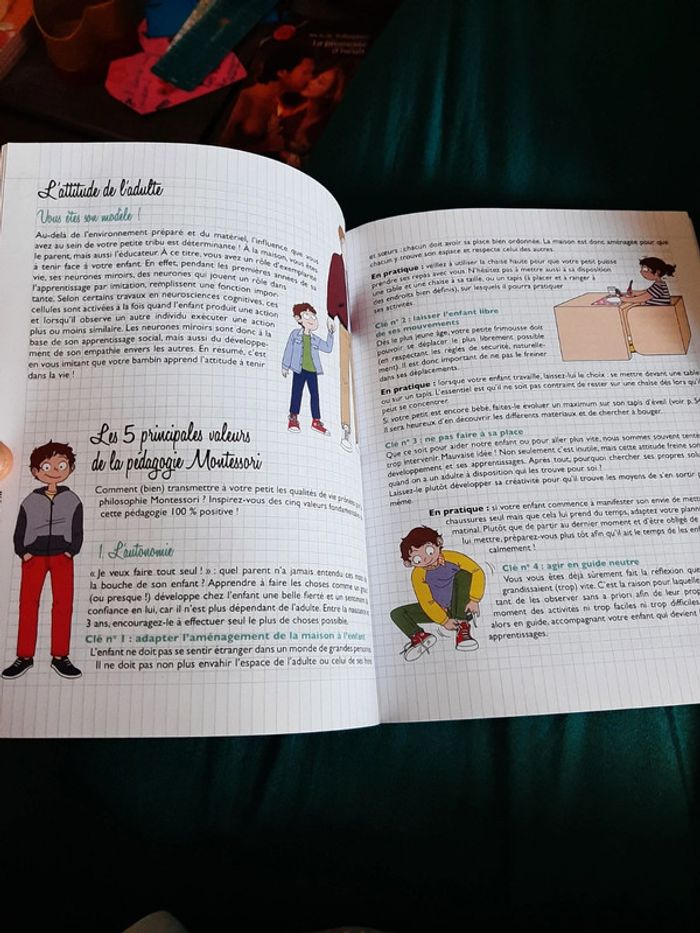 L'attitude de l'adulte
Vous êtes son modèle !
Au-delà de l'environnement préparé et du matériel, l'influence que vous
avez au sein de votre petite tribu est déterminante ! À la maison, vous êtes
le parent, mais aussi l'éducateur. À ce titre, vous avez un rôle d'exemplarité
à tenir face à votre enfant. En effet, pendant les premières années de sa
vie, ses neurones miroirs, des neurones qui jouent un rôle dans
l'apprentissage par imitation, remplissent une fonction impor-
tante. Selon certains travaux en neurosciences cognitives, ces
cellules sont activées à la fois quand l'enfant produit une action
et lorsqu'il observe un autre individu exécuter une action
plus ou moins similaire. Les neurones miroirs sont donc à la
base de son apprentissage social, mais aussi du développe-
ment de son empathie envers les autres. En résumé, c'est
en vous imitant que votre bambin apprend l'attitude à tenir
dans la vie !
Les 5 principales valeurs
de la pédagogie Montessori
Comment (bien) transmettre à votre petit les qualités de vie prônées par la
philosophie Montessori ? Inspirez-vous des cinq valeurs fondamentales de
cette pédagogie 100 % positive !
1. L'autonomie
« Je veux faire tout seul ! » : quel parent n'a jamais entendu ces mots de
la bouche de son enfant ? Apprendre à faire les choses comme un grand
(ou presque !) développe chez l'enfant une belle fierté et un sentiment de
confiance en lui, car il n'est plus dépendant de l'adulte. Entre la naissance et
3 ans, encouragez-le à effectuer seul le plus de choses possible.
Clé n° 1 : adapter l'aménagement de la maison à l'enfant
L'enfant ne doit pas se sentir étranger dans un monde de grandes personnes.
Il ne doit pas non plus envahir l'espace de l'adulte ou celui de ses frères
et sœurs : chacun doit avoir sa place bien ordonnée. La maison est donc aménagée pour que
chacun y trouve son espace et respecte celui des autres.
En pratique : veillez à utiliser la chaise haute pour que votre petit puisse
prendre ses repas avec vous. N'hésitez pas à mettre aussi à sa disposition
une table et une chaise à sa taille, ou un tapis (à placer et à ranger à
des endroits bien définis), sur lesquels il pourra pratiquer
ses activités.
Clé n° 2 : laisser l'enfant libre
de ses mouvements
Dès le plus jeune âge, votre petite frimousse doit
pouvoir se déplacer le plus librement possible
(en respectant les règles de sécurité, naturelle-
ment). Il est donc important de ne pas le freiner
dans ses déplacements.
En pratique : lorsque votre enfant travaille, laissez-lui le choix : se mettre devant une table
ou sur un tapis. L'essentiel est qu'il ne soit pas contraint de rester sur une chaise dès lors qu'il
peut se concentrer.
Si votre petit est encore bébé, faites-le évoluer un maximum sur son tapis d'éveil (voir p.
Il sera heureux d'en découvrir les différents matériaux et de chercher à bouger.
Clé n° 3 : ne pas faire à sa place
Que ce soit pour aider notre enfant ou pour aller plus vite, nous sommes souvent
trop intervenir. Mauvaise idée ! Non seulement c'est inutile, mais cette attitude freine son
développement et ses apprentissages. Après tout, pourquoi chercher ses propres
quand on a un adulte à disposition qui les trouve pour soi ?
Laissez-le plutôt développer sa créativité pour qu'il trouve les moyens de s'en sortir
même.
En pratique : si votre enfant commence à manifester son envie de
chaussures seul mais que cela lui prend du temps, adaptez votre
matinal. Plutôt que de partir au dernier moment et d'être obligé de
lui mettre, préparez-vous plus tôt afin qu'il ait le temps de les
calmement !
Clé n° 4 : agir en guide neutre
Vous vous êtes déjà sûrement fait la réflexion que
grandissaient (trop) vite. C'est la raison pour laquelle
tant de les observer sans a priori afin de leur
moment des activités ni trop faciles ni trop difficiles
alors en guide, accompagnant votre enfant qui devient
apprentissages.